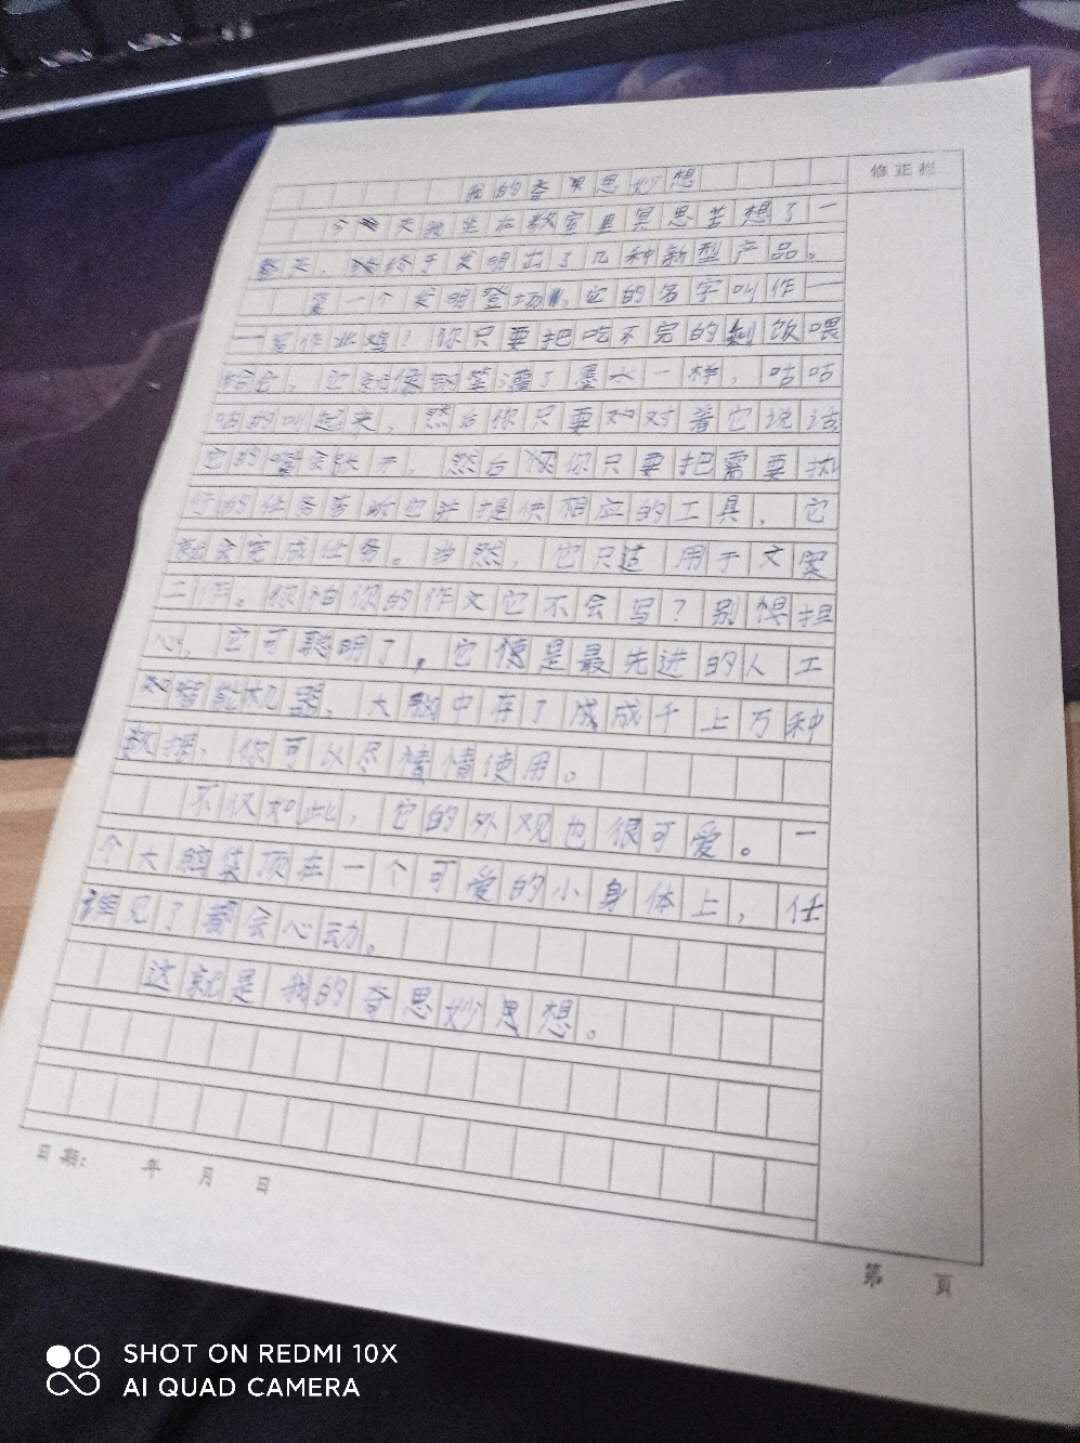 我的奇思妙想
修正栏
今天我坐在教室里冥思苦想了一
整天,终于发明出了几种新型产品。
第一个发明登场,它的名字叫作—
—写作业鸡!你只要把吃不完的剩饭喂
给它,它就像钢笔灌了墨水一样,咕咕
咕的叫起来,然后你只要对着它说话,
它的嘴会张开,然后你只要把需要执
行的任务告诉它并提供相应的工具,它
就会完成任务。当然,它只适用于文案
工作。你怕你的作文它不会写?别担
心,它可聪明了,它像是最先进的人工
智能机器,大脑中存了成千上万种
数据,你可以尽情使用。
不仅如此,它的外观也很可爱。一
个大脑袋顶在一个可爱的小身体上,任
谁见了都会心动。
这就是我的奇思妙思想。
日期: 年 月 日
第 页
SHOT ON REDMI 10X
AI QUAD CAMERA